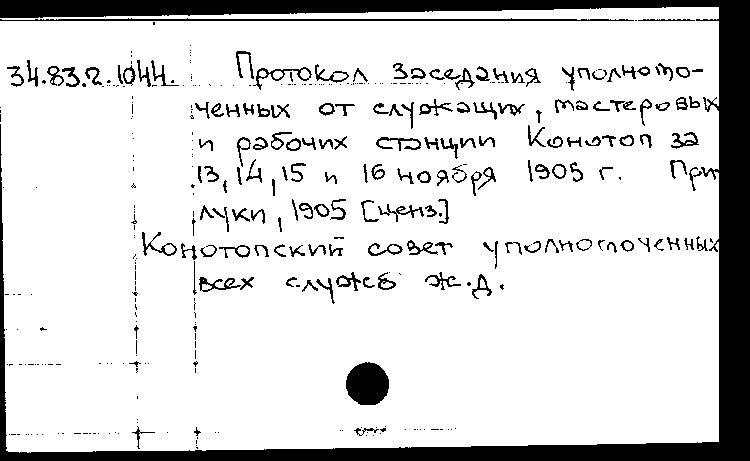 34.83.2.1044. Протокол заседания уполномо-
ченных от служащих, мастеровых
и рабочих станции Конотоп за
13, 14, 15 и 16 ноября 1905 г. При
луки, 1905 [ценз.]
Конотопский совет уполномоченных
всех служб ж.д.